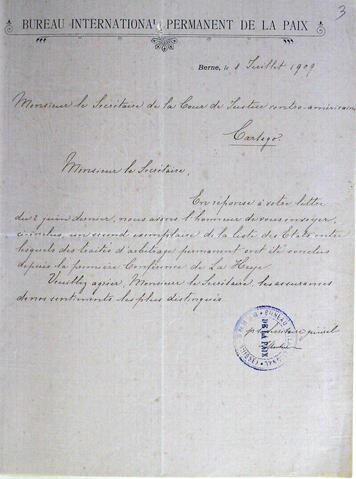 3
BUREAU INTERNATIONAL PERMANENT DE LA PAIX
Berne, le 8 Juillet 1909
Monsieur le Secrétaire de la Cour de Justice centro-américaine
Cartago
Monsieur le Secrétaire,
En réponse à votre lettre
du 2 juin dernier, nous avons l'honneur de vous envoyer,
ci-inclus, un second exemplaire de la liste des Etats entre
lesquels des traités d'arbitrage permanent ont été conclus
depuis la première Conférence de La Haye.
Veuillez agréer, Monsieur le Secrétaire, les assurances
de nos sentiments les plus distingués.
BUREAU
DE LA PAIX
BERNE